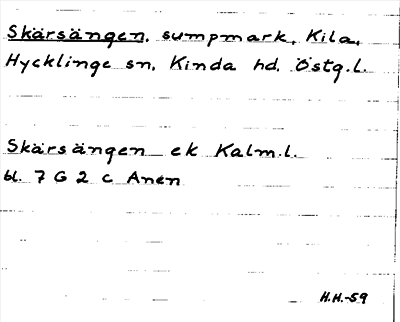 Skärsängen, sumpmark, Kila,
Hycklinge sn, Kinda hd, Östg.l.
Skärsängen ek Kalm.l.
bl. 7 G 2 c Anen
H.H.-59